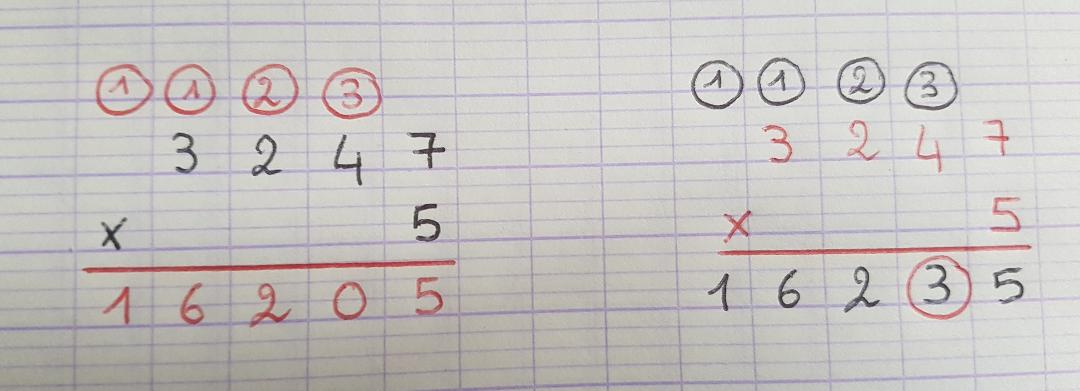 1 1 2 3
3 2 4 7
x 5
1 6 2 0 5
1 1 2 3
3 2 4 7
x 5
1 6 2 3 5